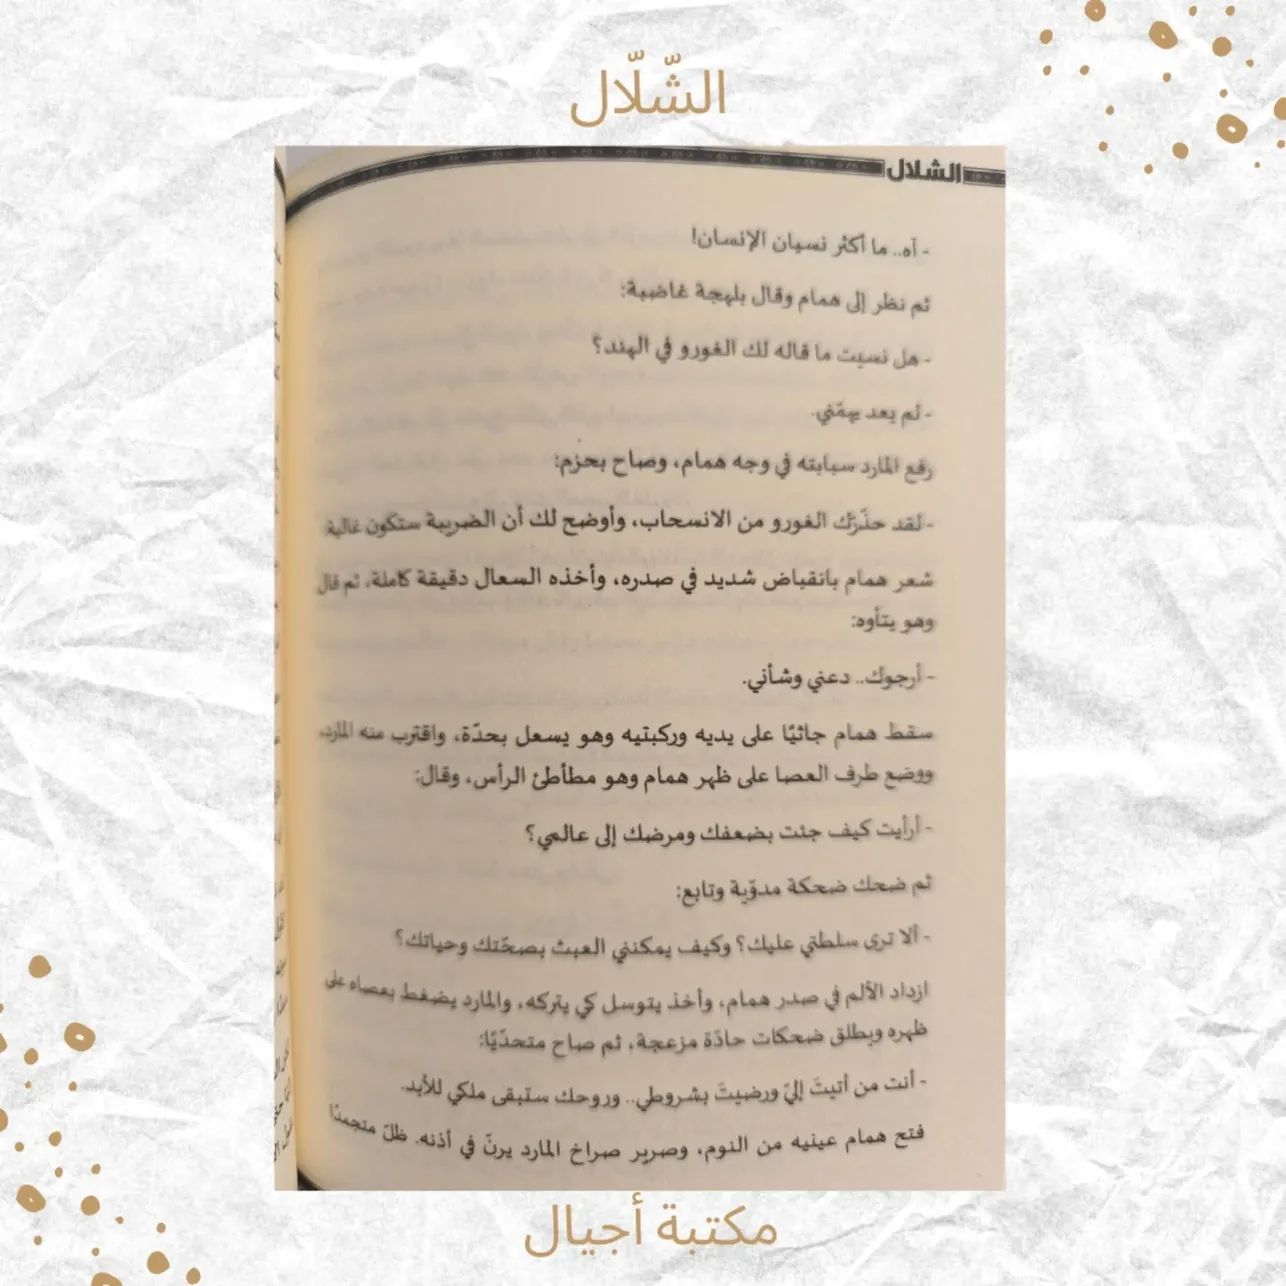 الشّلّال
الشلال
- آه.. ما أكثر نسيان الإنسان!
ثم نظر إلى همام وقال بلهجة غاضبة:
- هل نسيت ما قاله لك الغورو في الهند؟
- لم يعد يهمّني.
رفع المارد سبابته في وجه همام، وصاح بحزم:
- لقد حذّرك الغورو من الانسحاب، وأوضح لك أن الضريبة ستكون غالية.
شعر همام بانقباض شديد في صدره، وأخذه السعال دقيقة كاملة، ثم قال
وهو يتأوه:
- أرجوك.. دعني وشأني.
سقط همام جاثيًا على يديه وركبتيه وهو يسعل بحدّة، واقترب منه المارد،
ووضع طرف العصا على ظهر همام وهو مطأطئ الرأس، وقال:
- أرأيت كيف جئت بضعفك ومرضك إلى عالمي؟
ثم ضحك ضحكة مدوّية وتابع:
- ألا ترى سلطتي عليك؟ وكيف يمكنني العبث بصحّتك وحياتك؟
ازداد الألم في صدر همام، وأخذ يتوسل كي يتركه، والمارد يضغط بعصاه على
ظهره ويطلق ضحكات حادّة مزعجة، ثم صاح متحدّيًا:
- أنت من أتيتَ إليّ ورضيتَ بشروطي.. وروحك ستبقى ملكي للأبد.
فتح همام عينيه من النوم، وصرير صراخ المارد يرنّ في أذنه. ظلّ متجمدًا
مكتبة أجيال